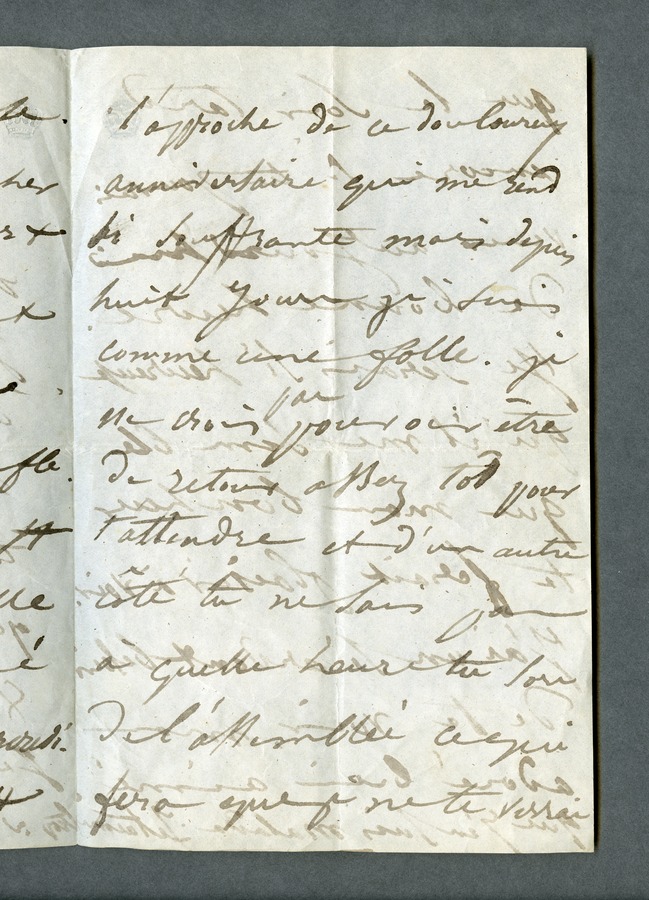 l'approche de ce douloureux
anniversaire qui me rend
si souffrante mais depuis
huit jours je suis
comme une folle. je
ne crois pas pouvoir être
de retour assez tôt pour
t'attendre et d'un autre
côté tu ne sais pas
à quelle heure tu sors
de l'assemblée ce qui
fera que je ne te verrai